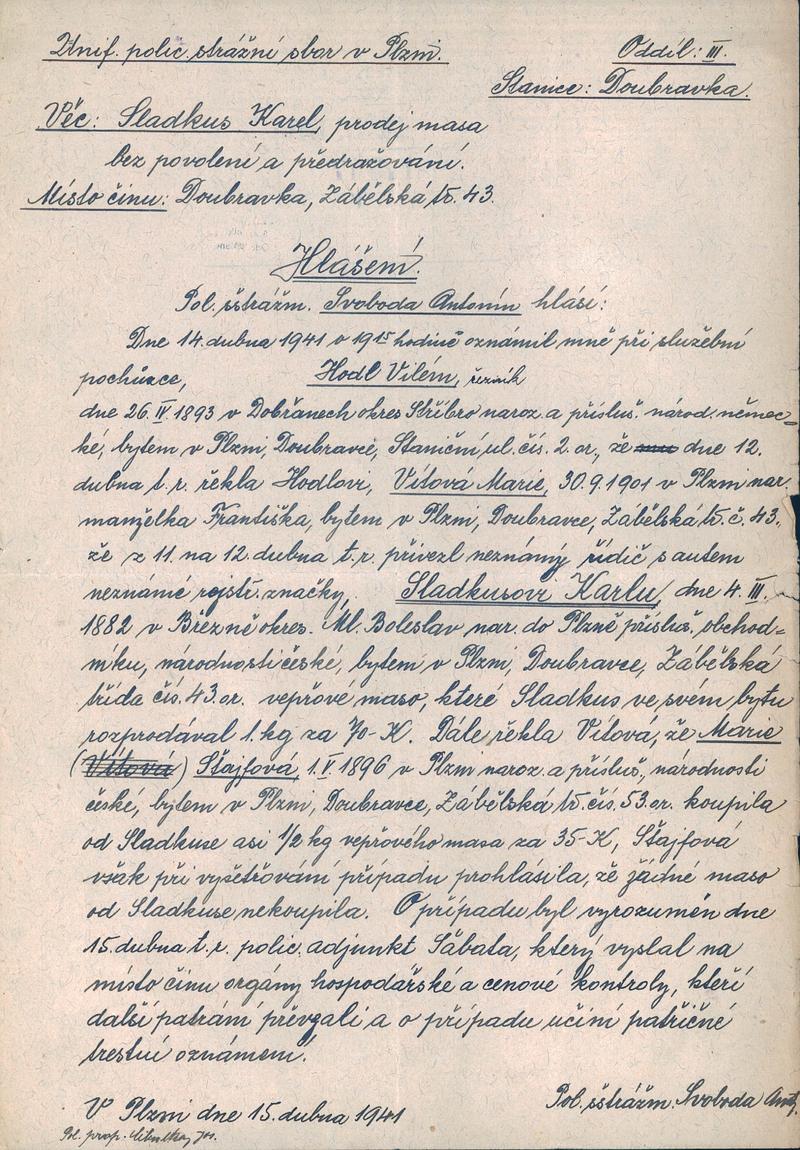 Unif. polic. strážní sbor v Plzni. Oddíl: III.
Stanice: Doubravka.
Věc: Sladkus Karel, prodej masa
bez povolení a předražování.
Místo činu: Doubravka, Zábělská tř. 43.
Hlášení.
Pol. sstrážm. Svoboda Antonín hlásí:
Dne 14. dubna 1941 v 19 15 hodině oznámil mně při služební
pochůzce, Hodl Vilém, řezník
dne 26. IV. 1893 v Dobřanech okres Stříbro naroz. a přísluš. národ. němec=
ké, bytem v Plzni, Doubravce, Staniční ul. čís. 2. or., že dne 12.
dubna t. r. řekla Hodlovi, Vítová Marie, 30. 9. 1901 v Plzni nar.
manželka Františka, bytem v Plzni, Doubravce, Zábělská tř. č. 43.,
že z 11. na 12. dubna t. r. přivezl neznámý řidič s autem
neznámé rejstř. značky, Sladkusovi Karlu, dne 4. III.
1882 v Březně okres. Ml. Boleslav nar. do Plzně přísluš. obchod=
níku, národnosti české, bytem v Plzni, Doubravce, Zábělská
třída čís. 43. or. vepřové maso, které Sladkus ve svém bytu
rozprodával 1. kg za 70- K. Dále řekla Vítová, že Marie
(Vítová) Štajfová, 1. V. 1896 v Plzni naroz. a přísluš., národnosti
české, bytem v Plzni, Doubravce, Zábělská tř. čís. 53. or. koupila
od Sladkuse asi 1/2 kg vepřového masa za 35- K, Štajfová
však při vyšetřování případu prohlásila, že žádné maso
od Sladkuse nekoupila. O případu byl vyrozuměn dne
15. dubna t. r. polic. adjunkt Šabata, který vyslal na
místo činu orgány hospodářské a cenové kontroly, kteří
další patrání převzali a o případu učiní patřičné
trestní oznámení.
V Plzni dne 15. dubna 1941
Pol. sstrážm. Svoboda Ant.
Pol. prap.